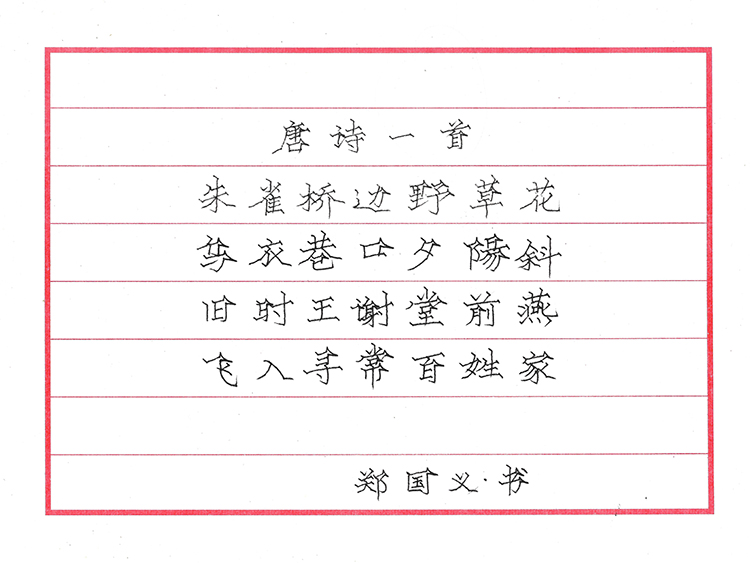 唐诗一首
朱雀桥边野草花
乌衣巷口夕陽斜
旧时王谢堂前燕
飞入寻常百姓家
郑国义·书